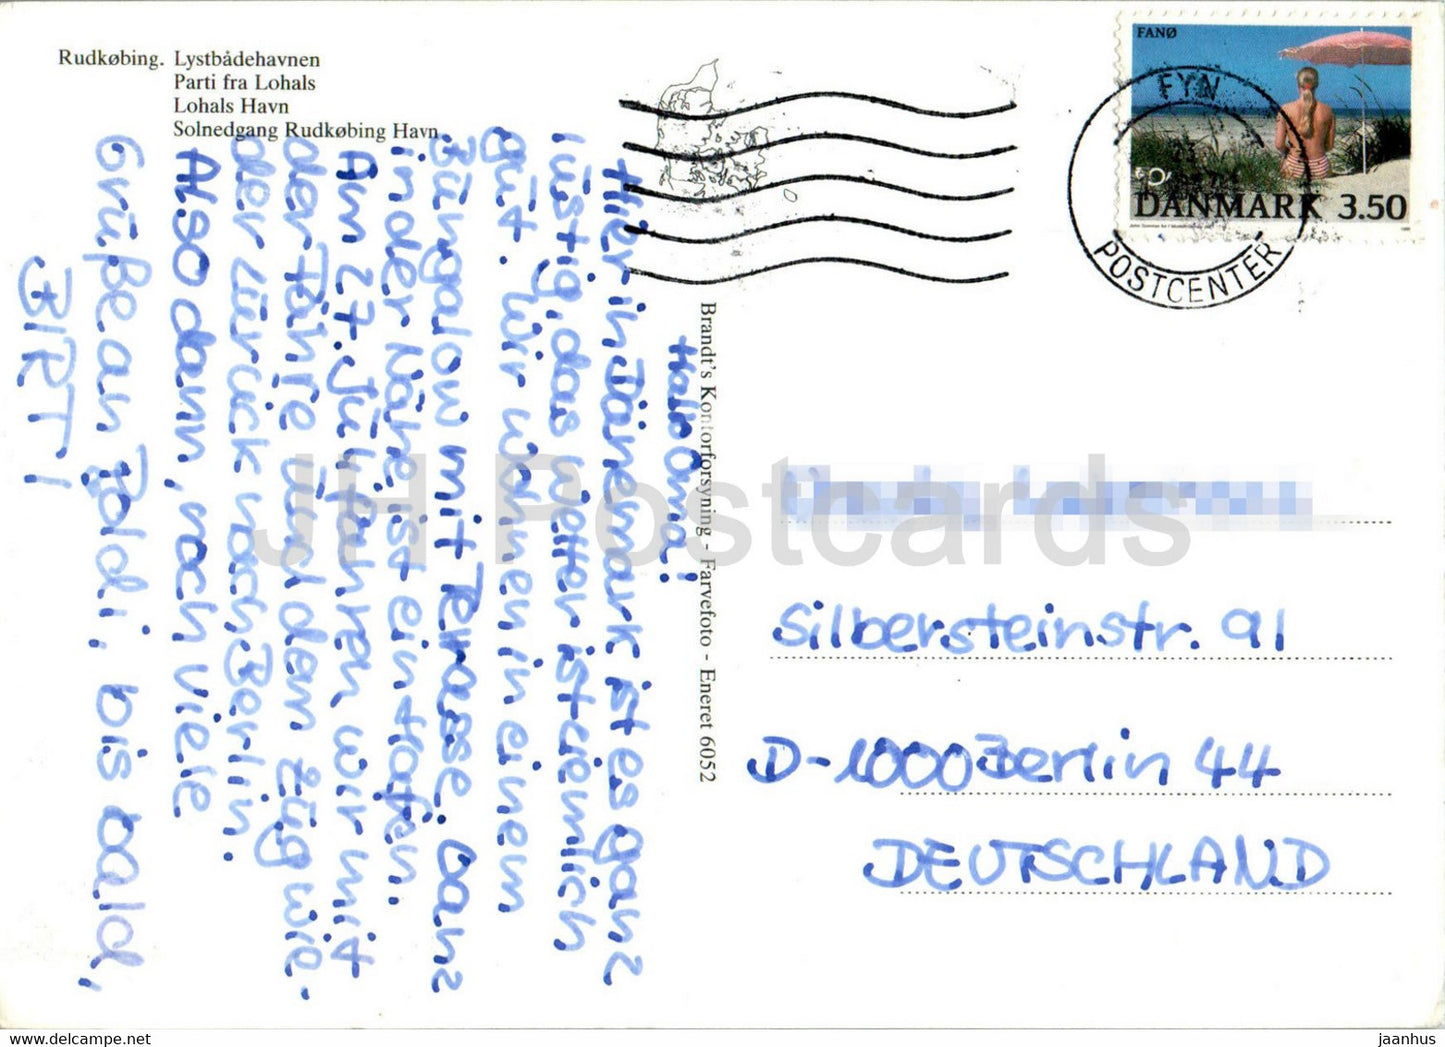 Rudkøbing. Lystbådehavnen
Parti fra Lohals
Lohals Havn
Solnedgang Rudkøbing Havn
FANØ
DANMARK 3.50
FYN
POSTCENTER
Hallo Oma!
Hier in Dänemark ist es ganz
lustig, das Wetter ist ziemlich
gut. Wir wohnen in einem
Bungalow mit Terasse. Ganz
in der Nähe ist ein Hafen.
Am 27. Juli fahren wir mit
der Fähre und dem Zug wie-
der zurück nach Berlin.
Also dann, noch viele
Grüße an Poldi, bis bald,
BIRT!
Brandt's Kontorforsyning - Farvefoto - Eneret 6052
Silbersteinstr. 91
D-1000 Berlin 44
DEUTSCHLAND
JH Postcards
jaanhus